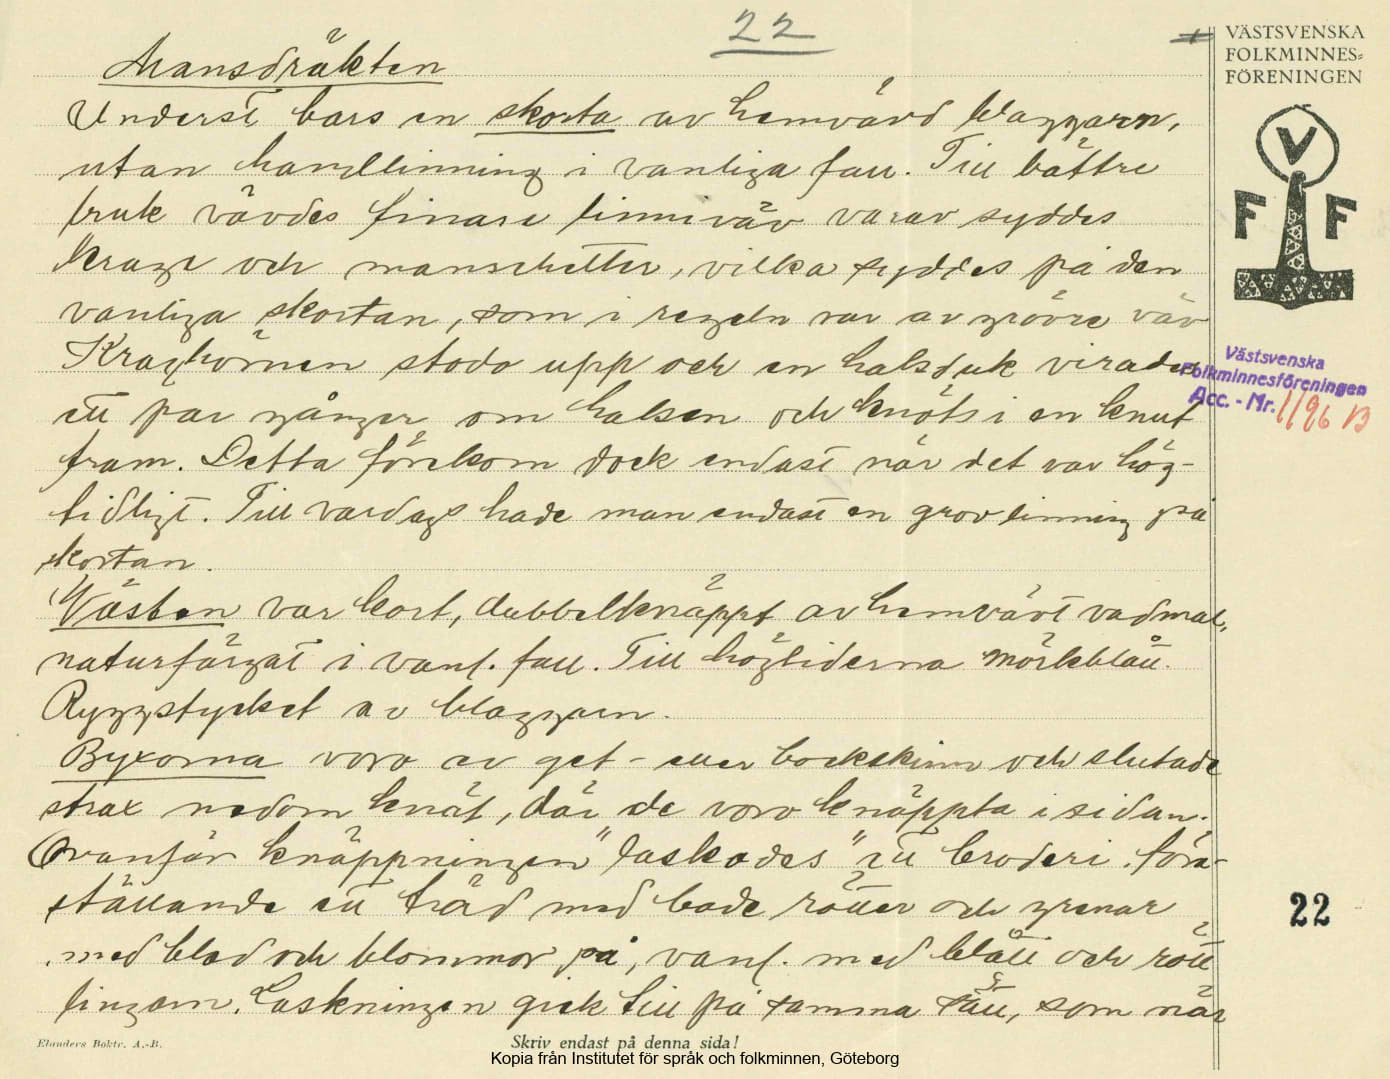 22
VÄSTSVENSKA
FOLKMINNES-
FÖRENINGEN
V
F F
Mansdräkten
Underst bars en skorta av hemvävd blaggarn,
utan handlinning i vanliga fall. Till bättre
bruk vävdes finare linneväv varav syddes
krage och manschetter, vilka syddes på den
vanliga skortan, som i regeln var av grövre väv
Kraghörnen stodo upp och en halsduk virades
ett par gånger om halsen och knöts i en knut
fram. Detta förekom dock endast när det var hög-
tidligt. Till vardags hade man endast en grov linning på
skortan.
Västen var kort, dubbelknäppt av hemvävt vadmal,
naturfärgat i vanl. fall. Till högtiderna mörkblått.
Ryggstycket av blaggarn.
Byxorna voro av get- eller bockskinn och slutade
strax nedom knät, där de voro knäppta i sidan.
Ovanför knäppningen "laskades" ett broderi före-
ställande ett träd med både rötter och grenar
med blad och blommor på, vanl. med blått och rött
lingarn. Laskningen gick till på samma sätt, som när
Västsvenska
Folkminnesföreningen
Acc. - Nr. 1196 B
22
Elanders Boktr. A.-B.
Skriv endast på denna sida!
Kopia från Institutet för språk och folkminnen, Göteborg